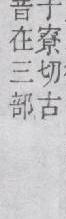 子寮切古
音在三部